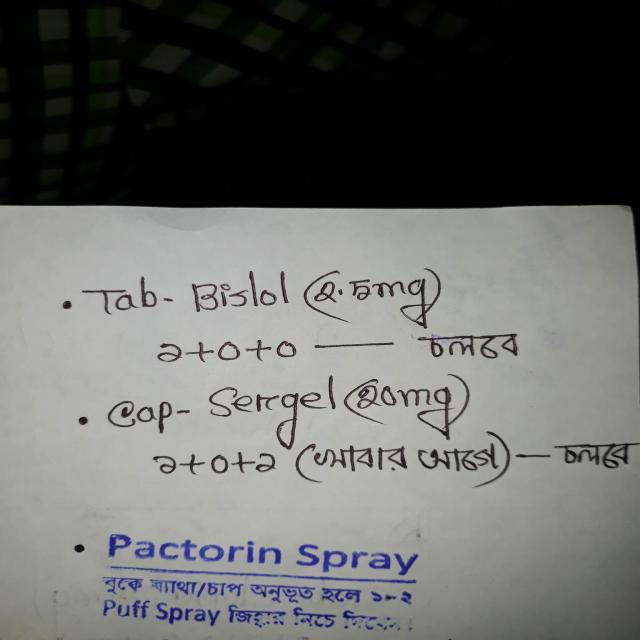 • Tab- Bislol (২.৫mg)
১+০+০ —— চলবে
• Cap- Sergel (২০mg)
১+০+১ (খাবার আগে) — চলবে
• Pactorin Spray
বুকে ব্যাথা/চাপ অনুভূত হলে ১-২
Puff Spray জিহ্বার নিচে দিবেন।